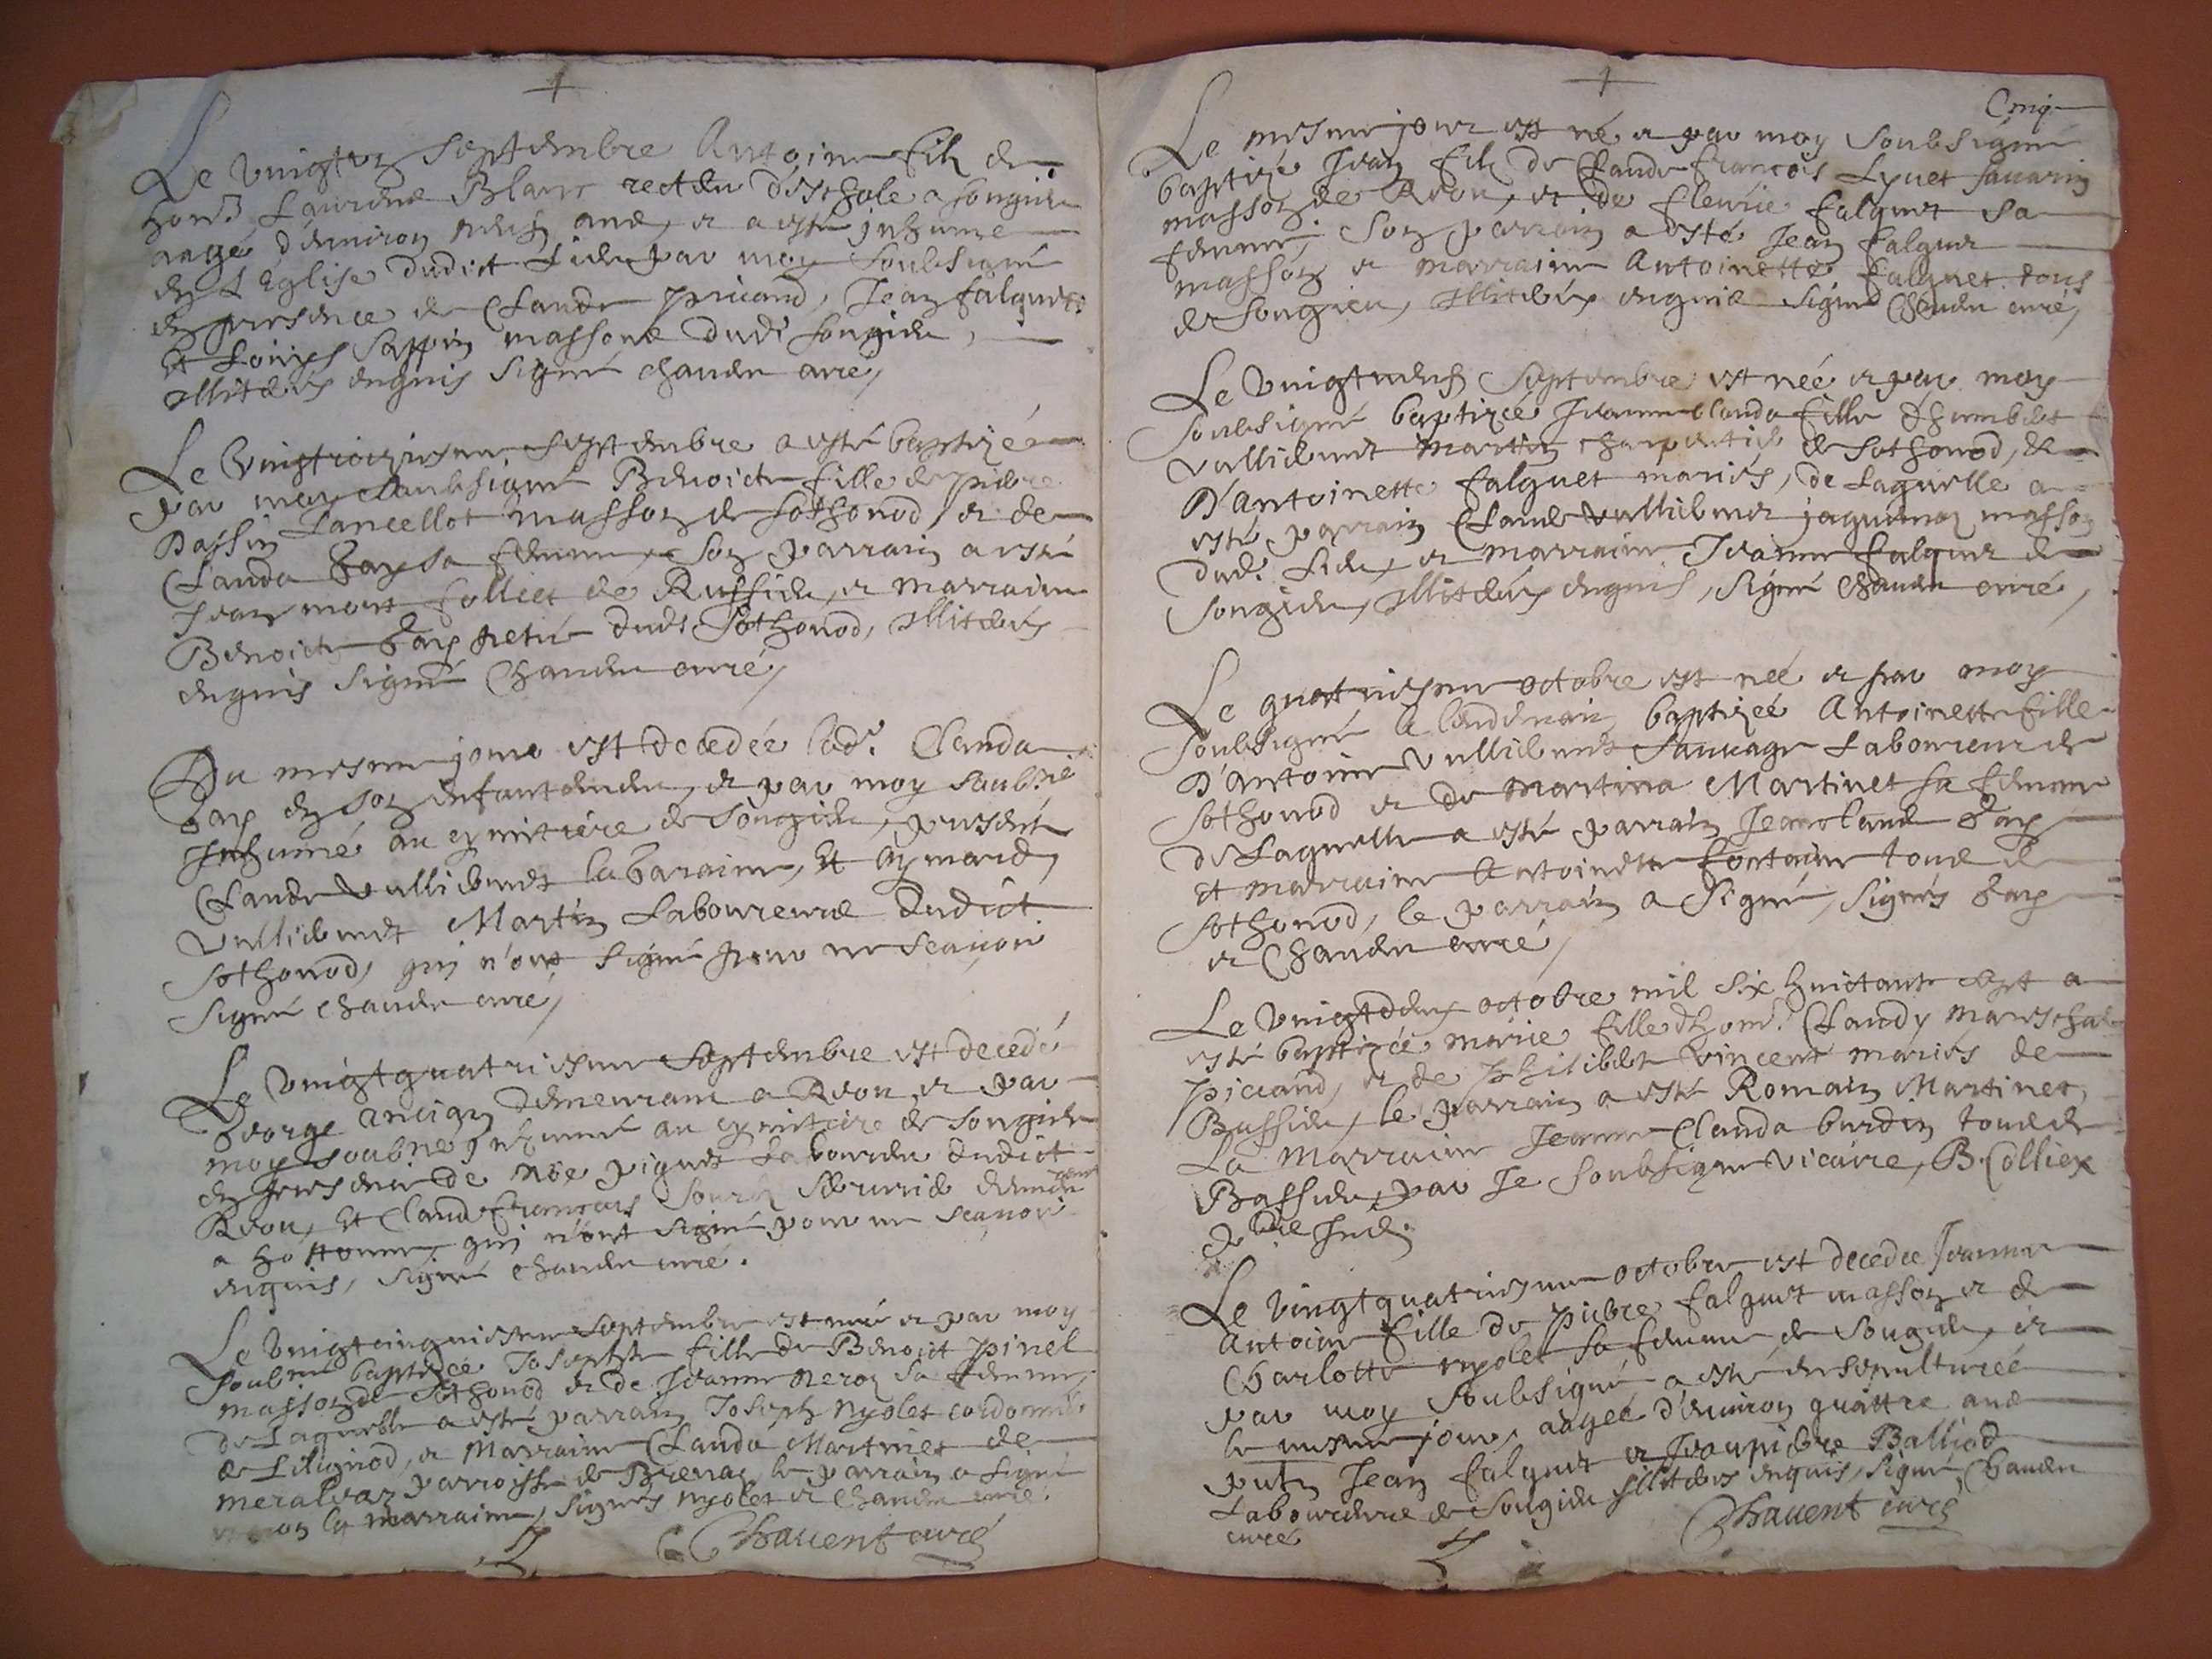 Le vingtun septembre Antoine fils de
hon. Laurens Blanc recteur d'eschole a Songieu
aagé d'environ neuf ans, et a esté inhumé
en L'Eglise dudict Lieu par moy soubsigné
en presence de Claude picaud, Jean falquet
et Louys Sappin massons dudt Songieu,
illiterés enquis Signé chauen curé,
Le vingtroiziesme septembre a esté baptizée
par moy soubsigné Benoicte fille de pierre
Passin Lancellot masson de Sothonod, et de
Clauda Bay sa femme, Son parrain a esté
Jean mort Colliet de Ruffieu, et marraine
Benoicte Bay dudt Sothonod, illiterés
enquis Signé Chauen curé,
Du mesme jour est decedée lad. Clauda
Bay en son enfantement, et par moy soubné
Inhumé au cymitiere de Songieu, presents
Claude vulliermet labaraine, Et Aymard
vulliermet Martin Laboureurs dudict
Sothonod, qui n'ont signé pour ne scavoir
Signé chauen curé,
Le vingtquatriesme Septembre est decedé
George ancian demeurant a Rvou, et par
moy soubné Inhumé au cymitiere de Songieu
en presence de Noe piguet Laboureur dudict
Rvou, Et Claude francois Sourd demeurant
a hostonne, qui n'ont signé pour ne scavoir
enquis, Signé chauen curé.
Le vingtcinquiesme Septembre est née et par moy
soubné baptizée Josephte fille de Benoict pinel
masson de Sothonod et de Jeanne neron sa femme,
de Laquelle a esté parrain Joseph nyolet cordonnier
de Lilignod, et Marraine Clauda Martinet de
meraleaz parroisse de Brenaz, le parrain a signé
non la marraine, Signés nyolet et Chauen curé.
Chauent curé
Cinq
Le mesme jour est né et par moy soubsigné
baptizé Jean fils de Claude francois Lyuet savarin
masson de Rvou, et de fleurie falquet sa
femme, Son parrain a esté Jean falquet
masson et marraine Antoinette falquet tous
de Songieu, illiterés enquis Signé Chauen curé,
Le vingtneuf Septembre est née et par moy
soubsigné baptizée Jeanneclauda fille d'humbert
vulliermet martin charpentier de Sothonod, et
D'Antoinette falquet mariés, de Laquelle a
esté parrain Claude vulliermet jaquemoz masson
dud. Lieu, et marraine Jeanne falquet de
Songieu, illiterés enquis, Signé Chauen curé,
Le quatriesme octobre est née et par moy
soubsigné le lendemain baptizée Antoinette fille
D'Antoine vulliermet Sauvage Laboureur de
Sothonod et de martina Martinet sa femme
de Laquelle a esté parrain Jeanclaude Bay
et marraine Antoinette fontaine tous de
Sothonod, le parrain a Signé, Signés Bay
et Chauen curé,
Le vingtdeux octobre mil six huictante sept a
esté baptizée marie fille d'hon. Claudy mareschal
picaud, et de philiberte vincent mariés de
Bassieu, le parrain a esté Romain Martinet,
La marraine Jeanne Clauda burdin tous de
Bassieu, par Je soubsigne vicaire, B. Colliex
Le vingtquatriesme octobre est decedée Jeanne
Antoine fille de pierre falquet masson et de
Charlotte nyolet sa femme de Songieu, et
par moy soubsigné a esté ensepulturée
le mesme jour, aagée d'environ quattre ans
pnts Jean falquet et Jeanpierre Balliod
Laboureurs de Songieu illiterés enquis, Signé Chauen
curé
Chauent curé